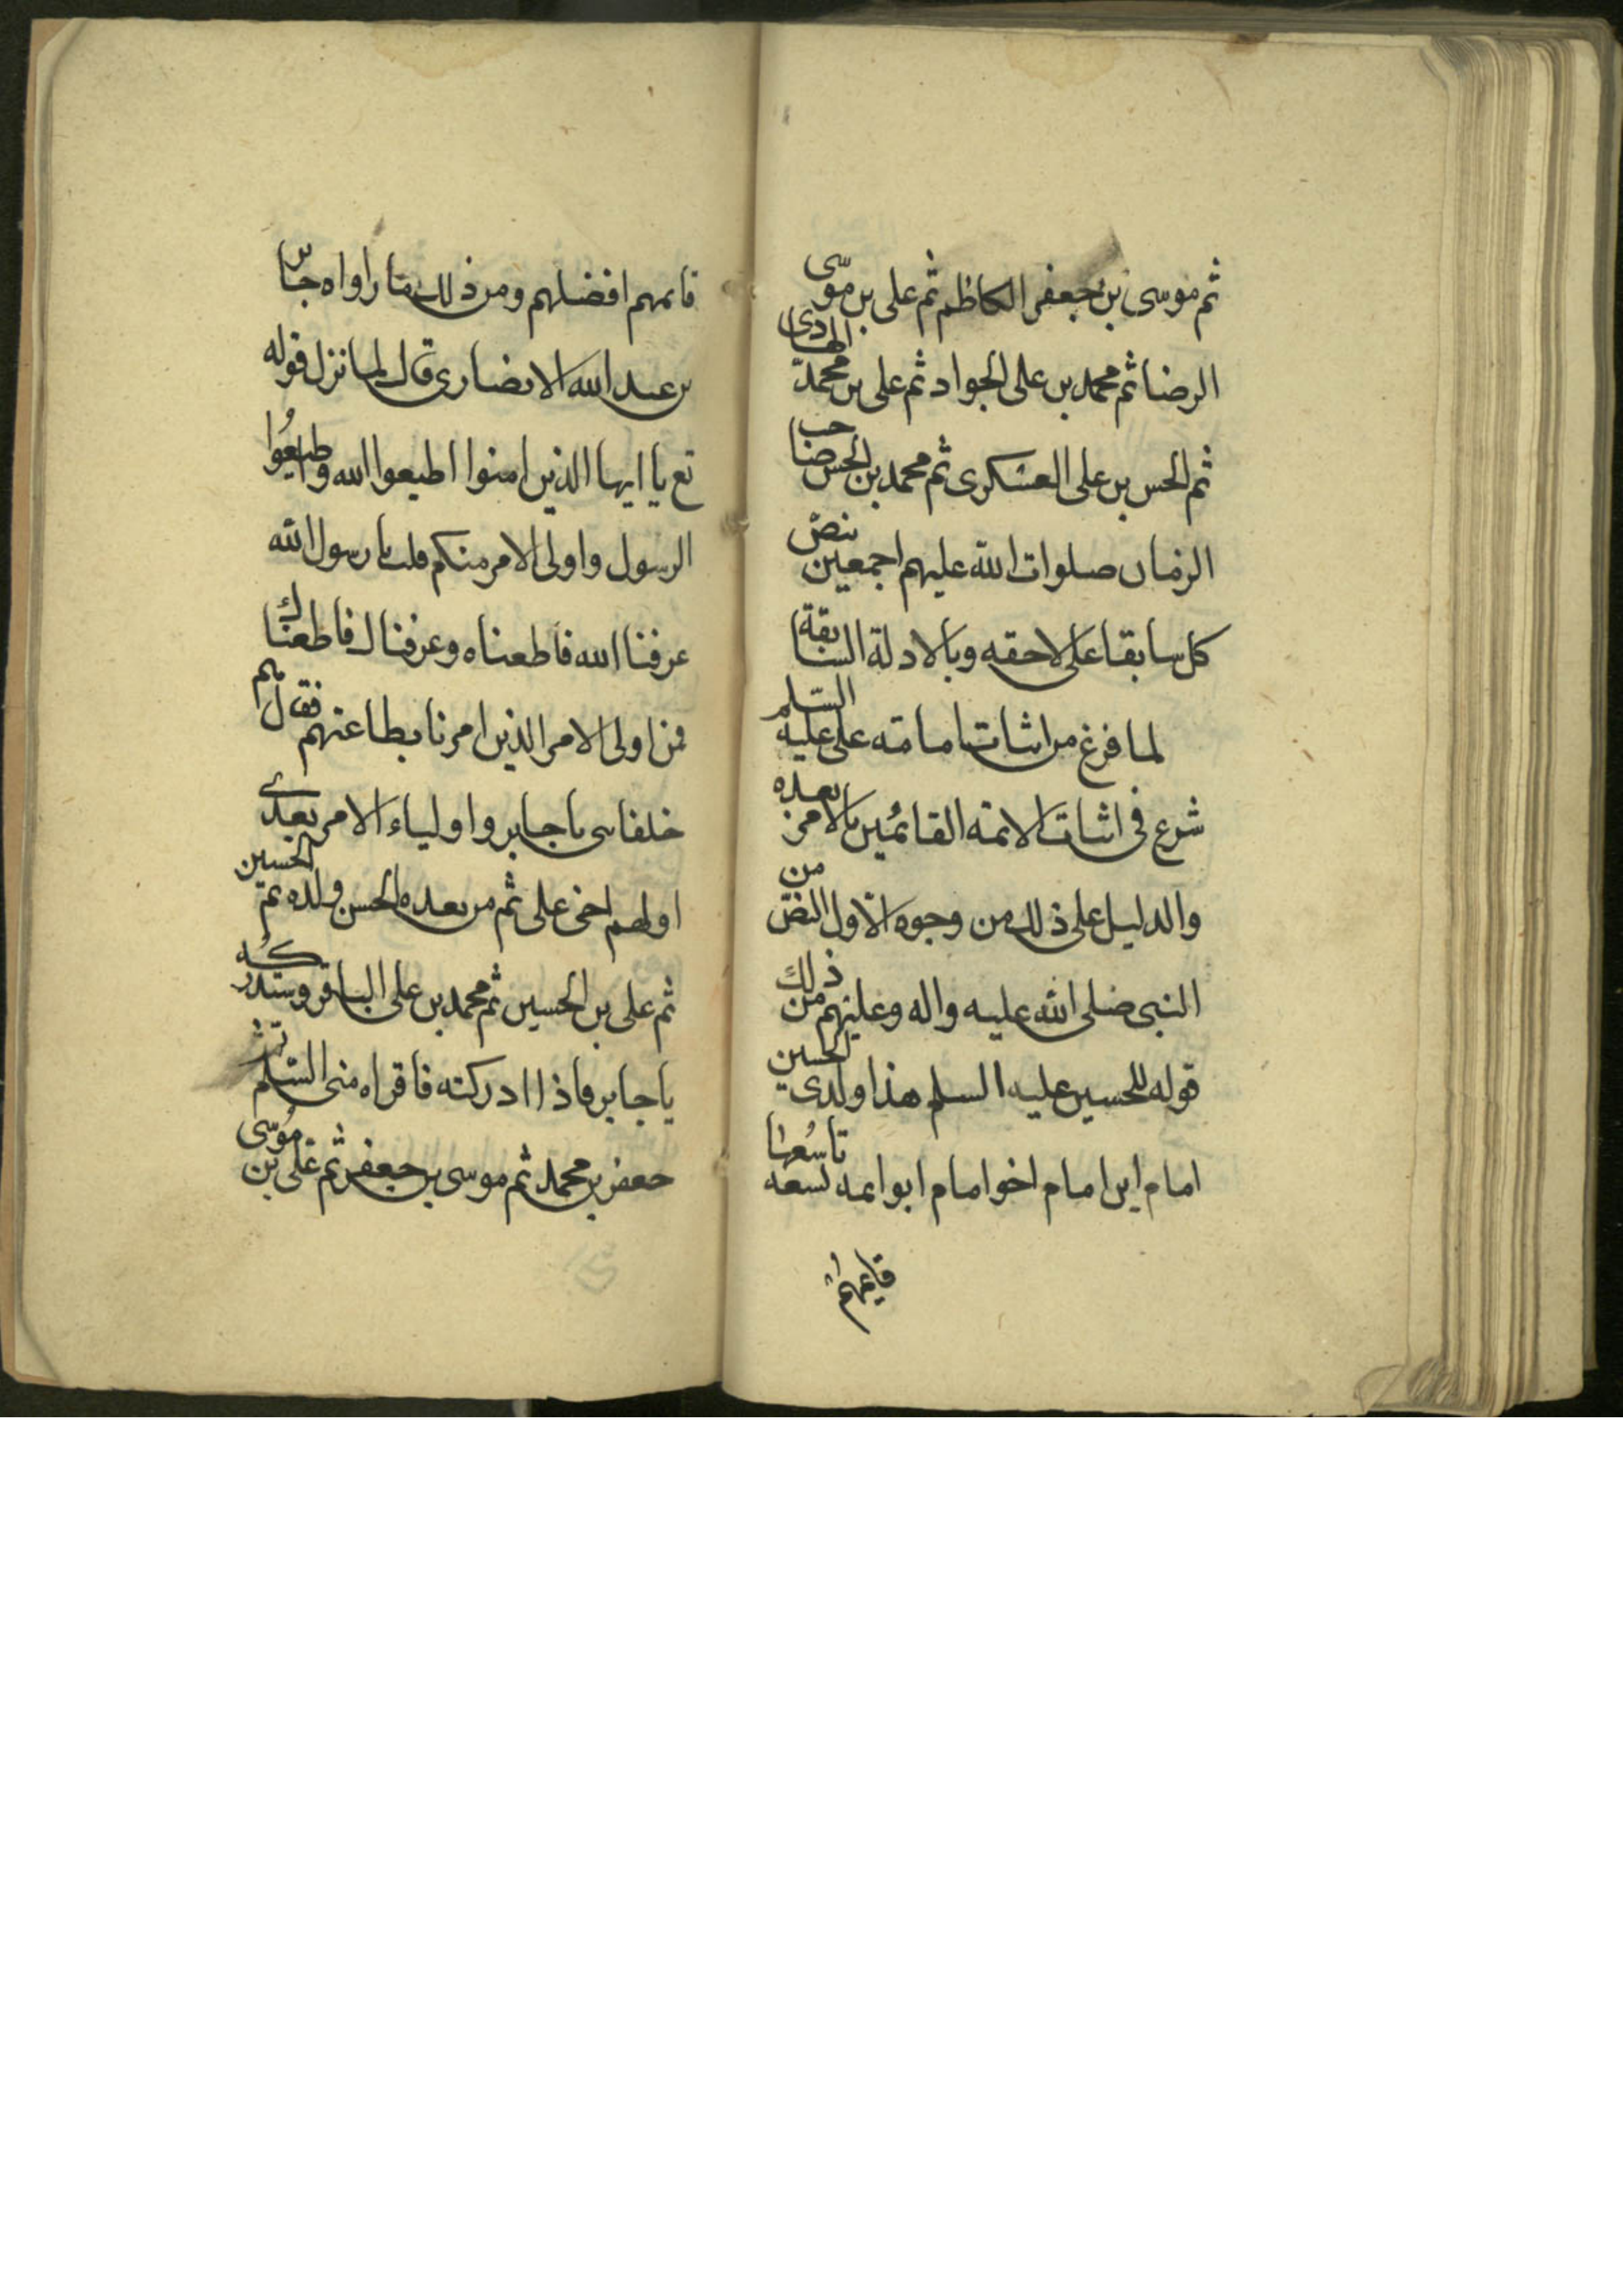 ثم موسى بن جعفر الكاظم ثم على بن موسى
الرضا ثم محمد بن على الجواد ثم على بن محمد الهادى
ثم الحسن بن على العسكرى ثم محمد بن الحسن صاحب
الزمان صلوات الله عليهم اجمعين بنص
كل سابق على لاحقه وبالادلة السابقة
لما فرغ من اثبات امامته على عليه السلم
شرع فى اثبات الائمه القائمين بالامر بعده
والدليل على ذلك من وجوه الاول النص من
النبى صلى الله عليه واله وعليهم من ذلك
قوله للحسين عليه السلم هذا ولدى الحسين
امام ابن امام اخو امام ابو ائمه تسعه تاسعها
قايمهم
قايمهم افضلهم ومن ذلك ما راواه جابر
بن عبد الله الانصارى قال لما نزل قوله
تع يا ايها الذين امنوا اطيعوا الله واطيعوا
الرسول واولى الامر منكم قلت يا رسول الله
عرفنا الله فاطعناه وعرفناك فاطعناك
فمن اولى الامر الذين امرنا بطاعتهم فقال هم
خلفاى يا جابر واولياء الامر بعدى
اولهم اخى على ثم من بعده الحسن ولده ثم الحسين
ثم على بن الحسين ثم محمد بن على الباقر وستدركه
يا جابر فاذا ادركته فاقراه منى السلم ثم
جعفر بن محمد ثم موسى بن جعفر ثم على بن موسى